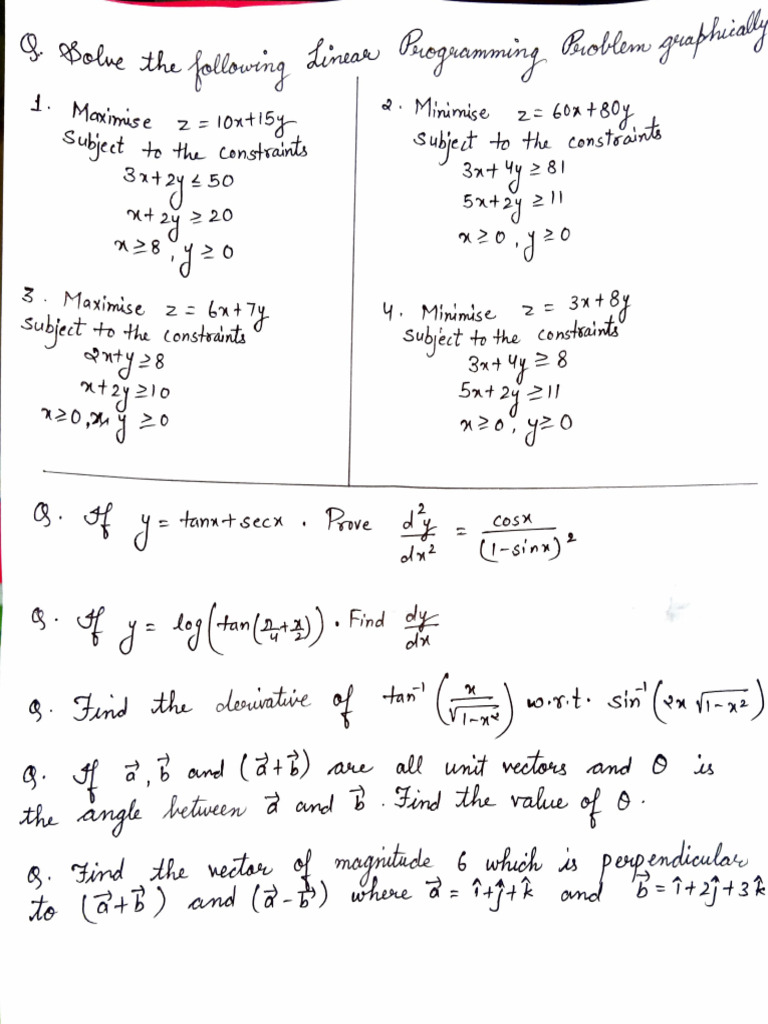 Q. Solve the following Linear Programming Problem graphically
1. Maximise z = 10x+15y
Subject to the constraints
3x+2y ≤ 50
x+2y ≥ 20
x ≥ 8, y ≥ 0
2. Minimise z = 60x+80y
Subject to the constraints
3x+4y ≥ 81
5x+2y ≥ 11
x ≥ 0, y ≥ 0
3. Maximise z = 6x+7y
Subject to the constraints
2x+y ≥ 8
x+2y ≥ 10
x ≥ 0, y ≥ 0
4. Minimise z = 3x+8y
Subject to the constraints
3x+4y ≥ 8
5x+2y ≥ 11
x ≥ 0, y ≥ 0
Q. If y = tanx + secx . Prove d²y/dx² = cosx/(1-sinx)²
Q. If y = log(tan(π/4+x/2)) . Find dy/dx
Q. Find the derivative of tan⁻¹(x/√1-x²) w.r.t. sin⁻¹(2x √1-x²)
Q. If a⃗, b⃗ and (a⃗+b⃗) are all unit vectors and θ is
the angle between a⃗ and b⃗. Find the value of θ.
Q. Find the vector of magnitude 6 which is perpendicular
to (a⃗+b⃗) and (a⃗-b⃗) where a⃗ = î+ĵ+k̂ and b⃗ = î+2ĵ+3k̂